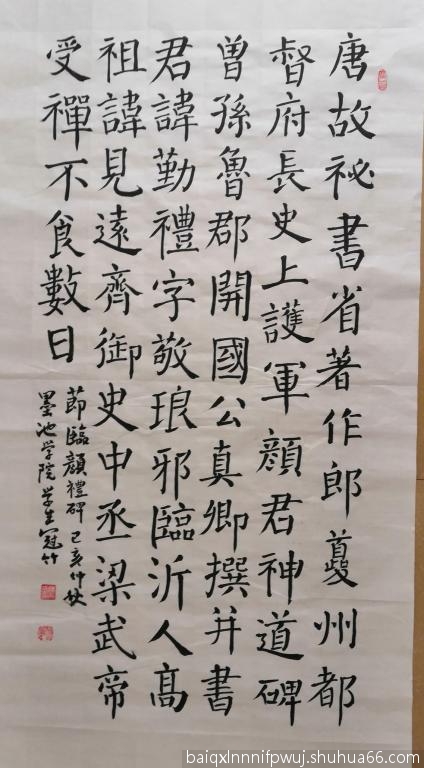 唐故祕書省著作郎夔州都
督府長史上護軍顏君神道碑
曾孫魯郡開國公真卿撰并書
君諱勤禮字敬琅邪臨沂人高
祖諱見遠齊御史中丞梁武帝
受禪不食數日
節臨顏禮碑 己亥仲秋
墨池学院学生冠竹
baiqxlnnnifpwuj.shuhua66.com